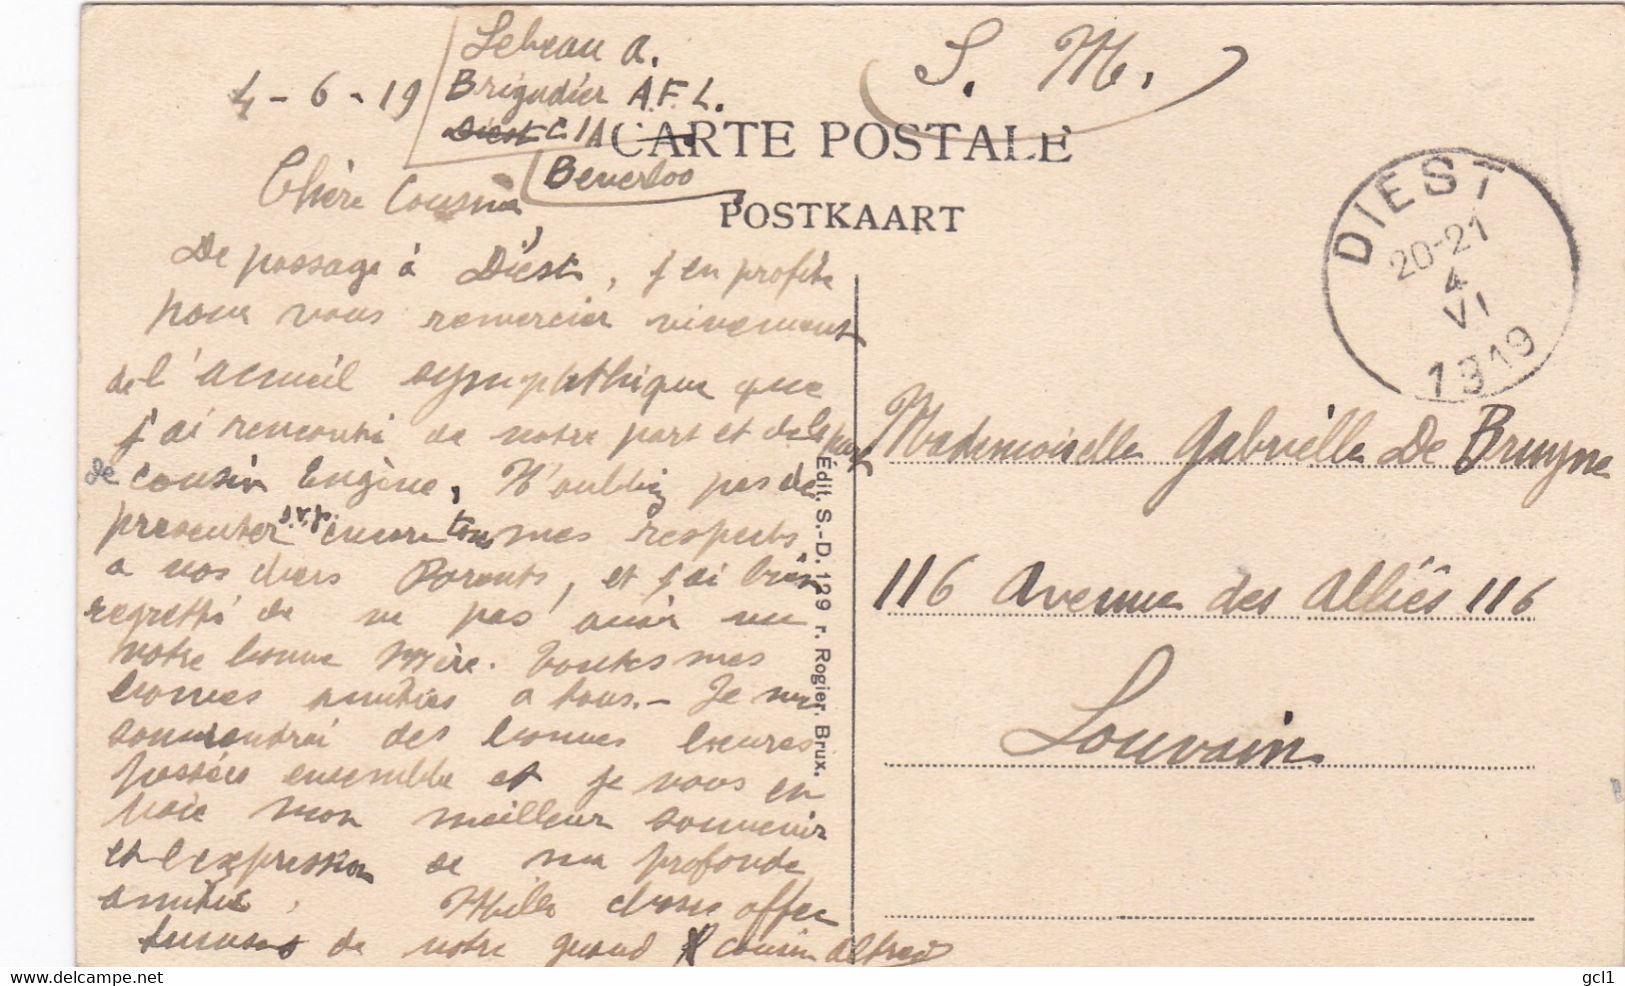 Lebeau A.
4-6-19 Brigadier A.F.L.
Diest C.I.A
Beverloo
S. M.
CARTE POSTALE
POSTKAART
DIEST
20-21
4
VI
1919
1919
Chère Cousine,
De passage à Diest, j'en profite
pour vous remercier vivement
de l'accueil sympathique que
j'ai rencontré de votre part et de la part
de cousin Eugène, N'oubliez pas de
présenter s.v.p. encore tous mes respects
a vos chers Parents, et j'ai bien
regretté de ne pas avoir vu
votre bonne Mère. Toutes mes
bonnes amitiés a tous. - Je me
souviendrai des bonnes heures
passées ensemble et je vous en
voie mon meilleur souvenir
et l'expression de ma profonde
amitié. Mille choses affec
tueuses de votre grand cousin Alfred
Mademoiselle Gabrielle De Bruyne
116 Avenue des Alliés 116
Louvain
Édit. S.-D. 129 r. Rogier. Brux.
Posted for sale on delcampe.net
gcl1